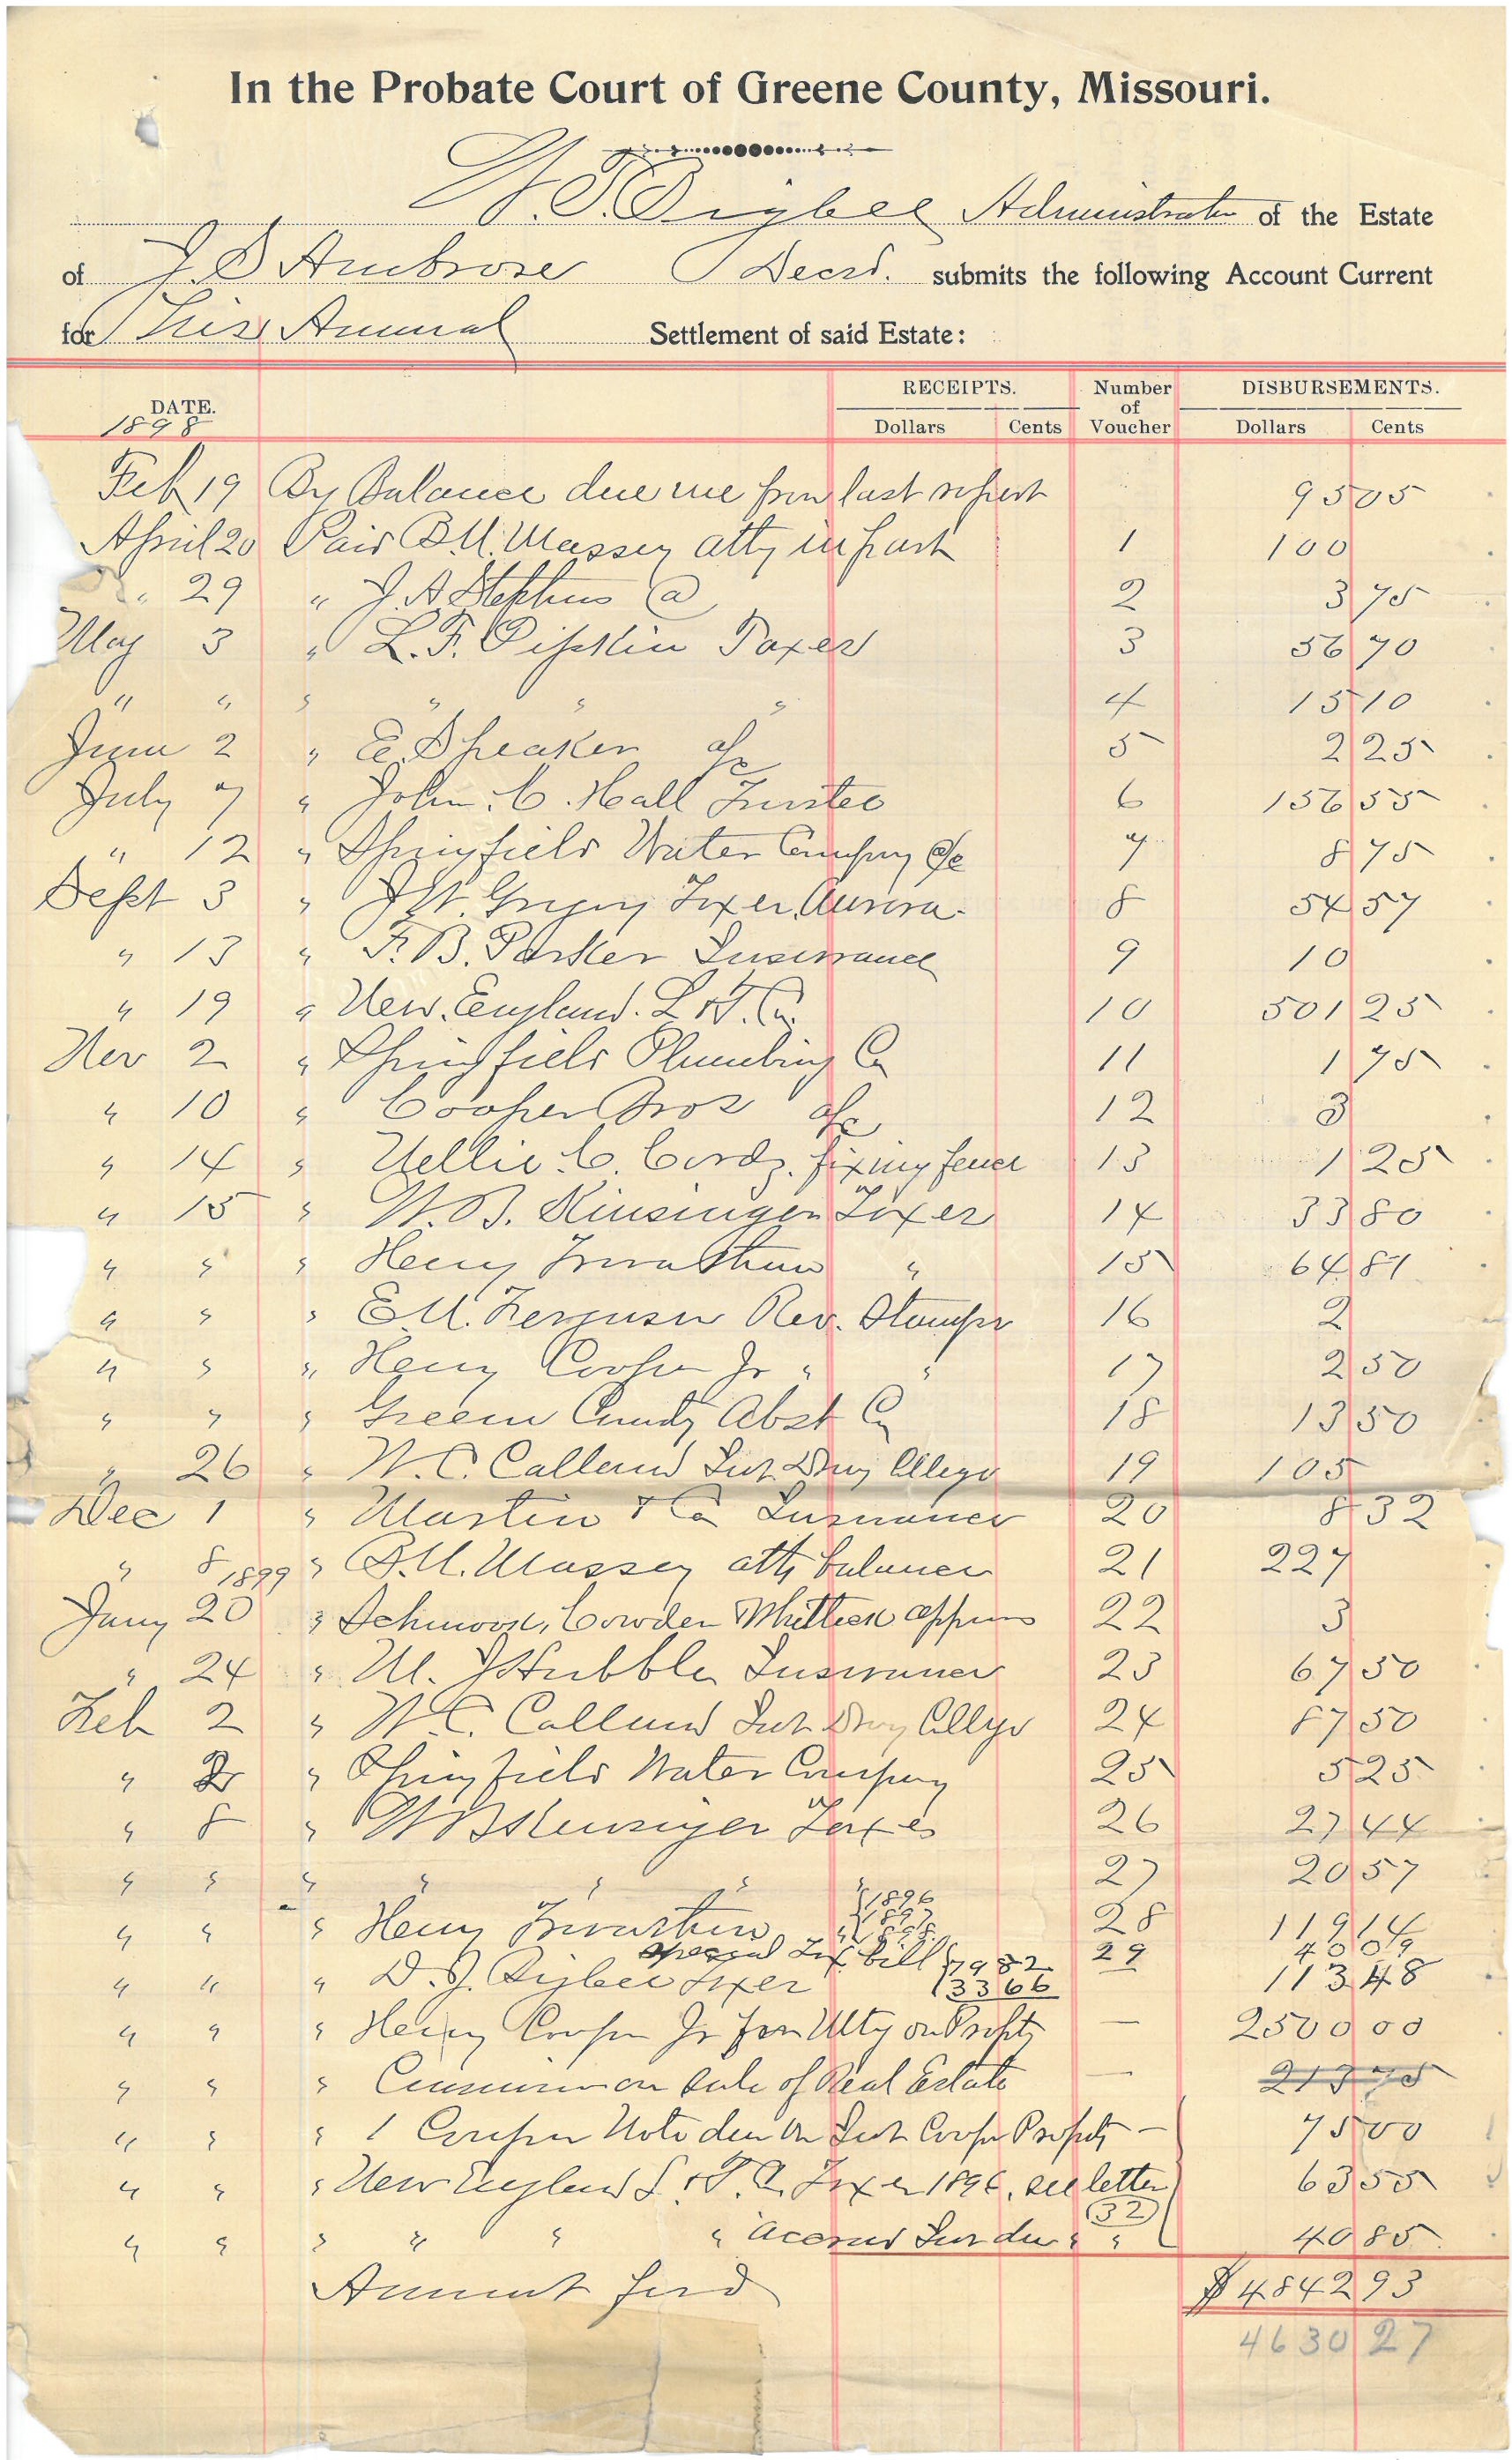 In the Probate Court of Greene County, Missouri.
Administrator of the Estate
of J. S. Ambrose Decsd. submits the following Account Current
for This Annual Settlement of said Estate:
DATE. RECEIPTS. Number of Voucher DISBURSEMENTS.
1898 Dollars Cents Dollars Cents
Feb 19 By Balance due me from last report 95 05
April 20 Paid B.U. Massey atty in part 1 100
" 29 " J. A Stephens @ 2 3 75
May 3 " L. F. Pipkin Taxes 3 56 70
" " " " " " 4 15 10
June 2 " E. Speaker a/c 5 2 25
July 7 " John. C. Hall Trustee 6 156 55
" 12 " Springfield Water Company a/c 7 8 75
Sept 3 " J W. Taxes Aurora 8 54 57
" 13 " F. B. Parker Insurance 9 10
" 19 " New. England. L & T. Co. 10 501 25
Nov 2 " Springfield Plumbing Co 11 1 75
" 10 " Cooper Bros a/c 12 3
" 14 " Nellie. C. fixing fence 13 1 25
" 15 " W. B. Kinsinger Taxes 14 33 80
" " " Henry " 15 64 81
" " " E.U. Ferguson Rev. Stamps 16 2
" " " Henry Cooper Jr " " 17 2 50
" " " Green County Abst Co 18 13 50
" 26 " W. C. Calland Int Drury College 19 105
Dec 1 " Martin & Co Insurance 20 8 32
" 8 " B.U. Massey atty balance 21 227
1899
Jany 20 " Cowden 22 3
" 24 " M. J Hubble Insurance 23 67 50
Feb 2 " W. C. Calland Int Drury College 24 87 50
" 2 " Springfield Water Company 25 5 25
" 8 " W B Kinsinger Taxes 26 27 44
" " " " " " 27 20 57
" " " Henry 1896 1897 1898 28 119 14
special Tax bill 79 82 29 40 09
" " " Taxes 33 66 113 48
" " " Henry Cooper Jr on Propty — 2500 00
" " " Commission on sale of Real Estate — 213 75
" " " 1 Coupon Note due on Int Coop Propty — 75 00
" " " New England L. & T. Co. Taxes 1896, see letter 63 55
(32)
" " " " " " Accrued Int due " " 40 85
Amount ford $ 4842 93
4630 27